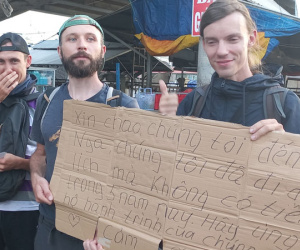 Xin chào, chúng tôi đến
Nga chúng tôi đã đi d
lịch mà không có tiề
trong 3 năm nay Hãy ủng
hộ hành trình của chúng
Cảm